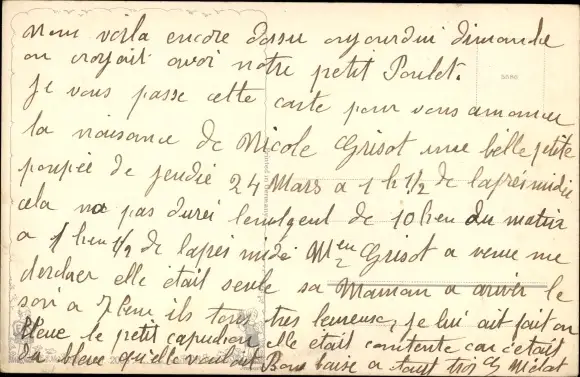 nous voila encore dessu aujourdui dimanche
on croyait avoi notre petit Poulet.
Je vous passe cette carte pour vous annoncer
la naisance de Nicole Grisot une belle petite
poupée de jeudie 24 Mars a 1 h 1/2 de laprés midie
cela na pas durei de 10 heu du matin
a 1 heu 1/2 de laprés midi Grisot a venue me
elle était seule sa Maman a ariver le
soir a 7 heu ils tous très heureuse, je lui ait fait en
bleue le petit capuchon elle était contente car c'était
du bleue qu'elle voulait Bons baise a tout trois